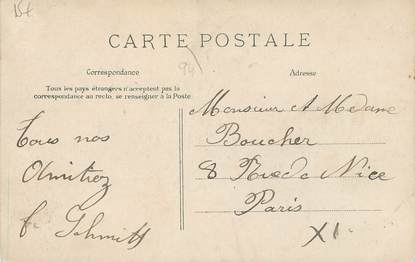 CARTE POSTALE
Correspondance
Adresse
Tous les pays étrangers n'acceptent pas la
correspondance au recto, se renseigner à la Poste.
Tous nos
Amitiez
Schmitt
Monsieur et Madame
Boucher
8 Rue de Nice
Paris
XI